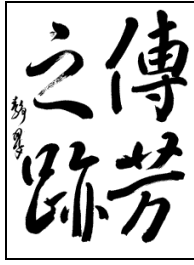 傳芳
之跡